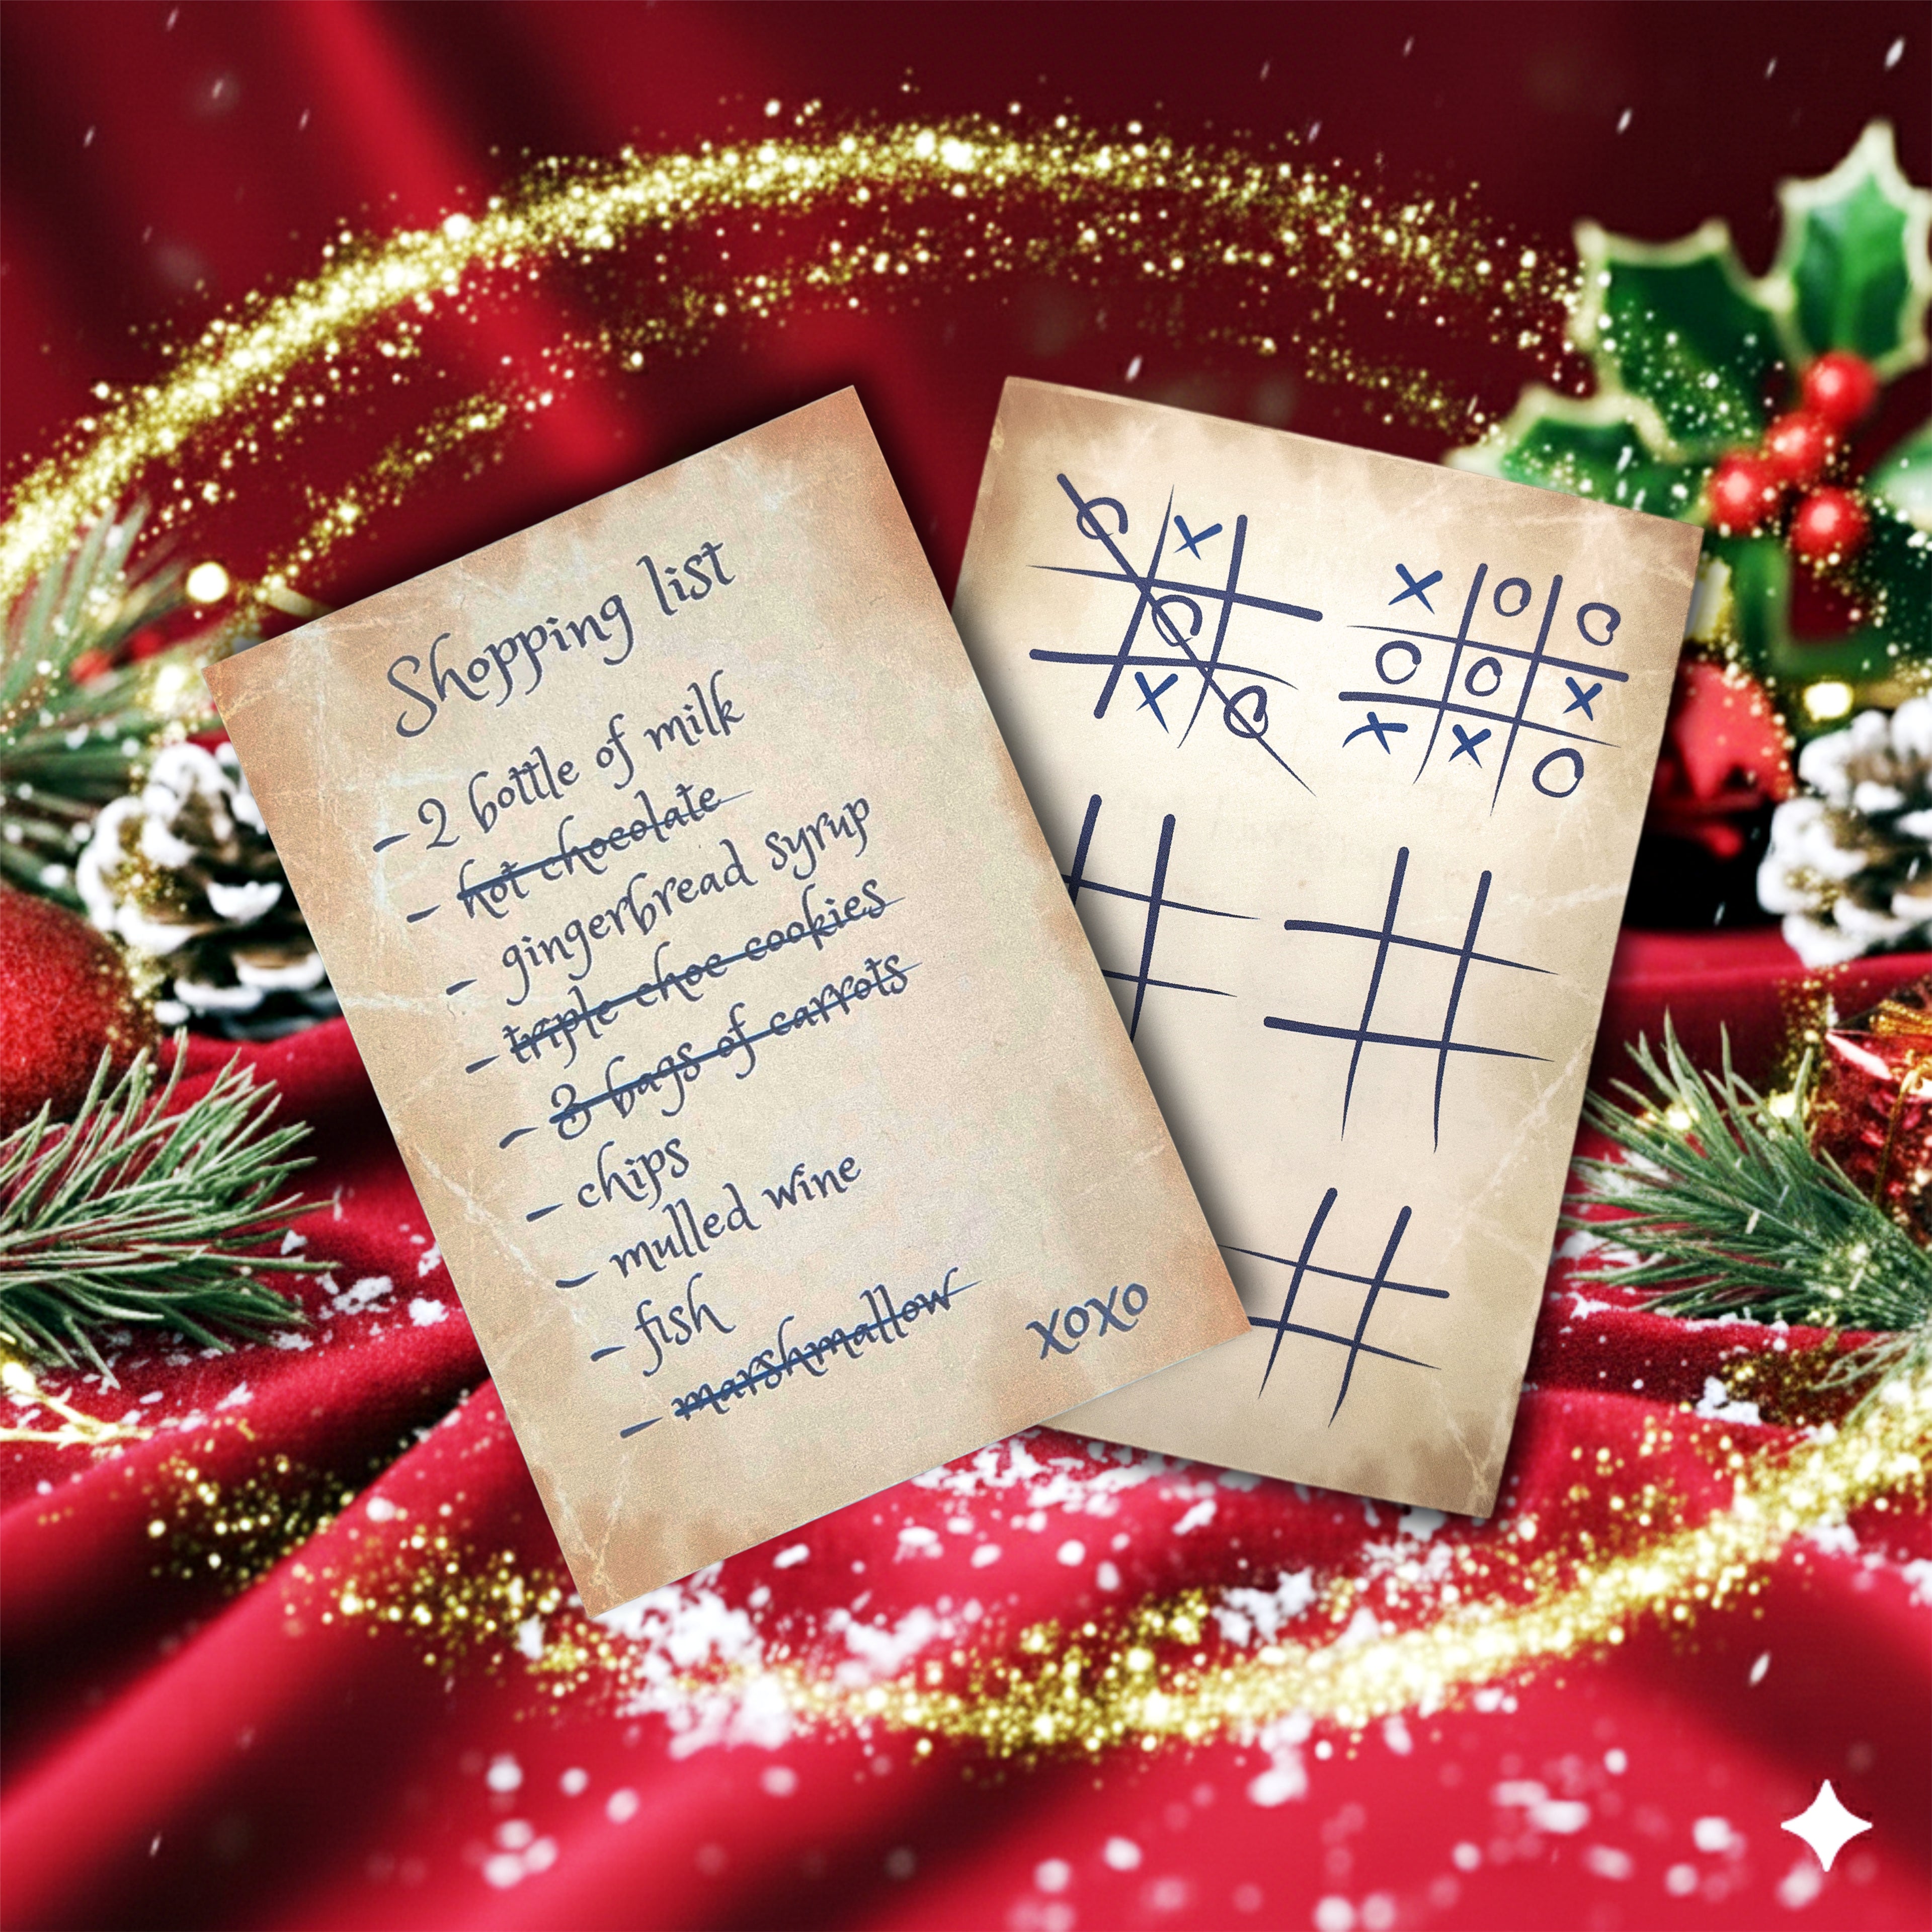 Shopping list
- 2 bottle of milk
- hot chocolate
- gingerbread syrup
- triple choc cookies
- 3 bags of carrots
- chips
- mulled wine
- fish
- marshmallow
xoxo
O X
O
X O
X O O
O O X
X X O